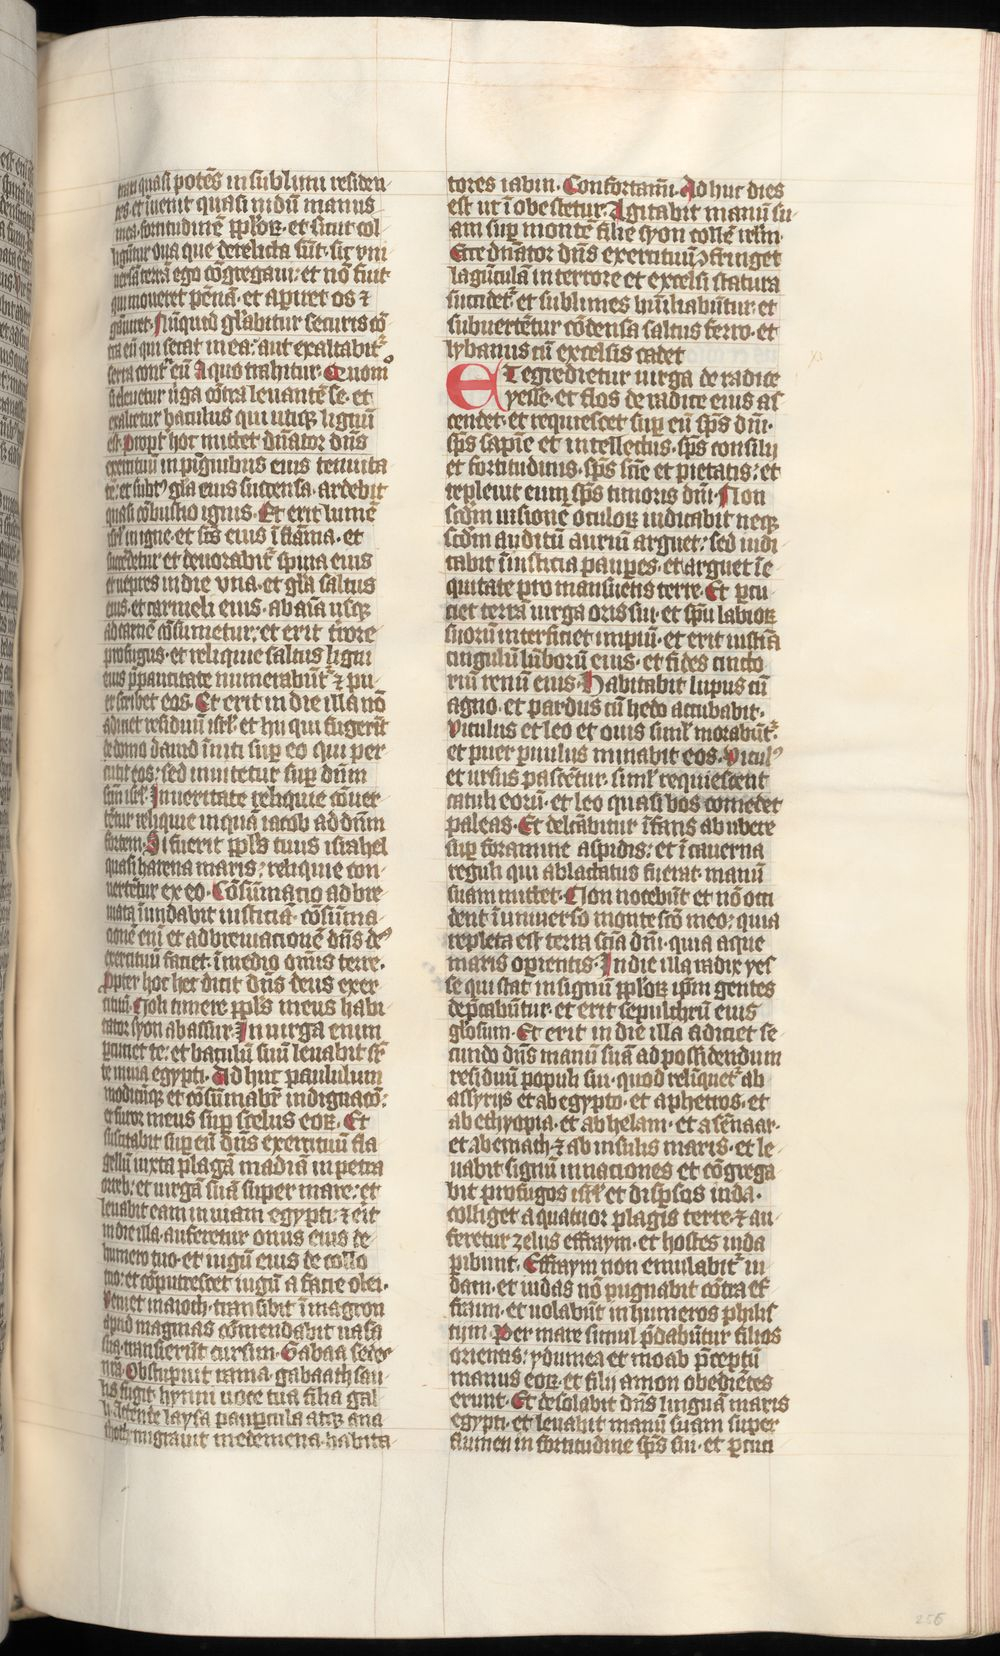 traxi quasi potēs in sublimi residen
tes et iuenit quasi nidū manus
mea fortitudinē pploꝝ· et sicut col
ligūtur oua que derelicta sūt· sic vni
uersā terrā ego cōgregaui: et nō fuit
qui moueret pēnā· et apiret os ⁊
gāniret· Nūquid gl'abitur securis cō
tra eū qui secat in ea: aut exaltabit̄
serra cont̄ eū A quo trahitur· Quom̊
si eleuetur uirga cōtra leuantē se· et
exaltetur baculus qui utiqꝫ lignū
est· propt̄ hoc mittet dn̄ator dn̄s
exercituū in pīguibus eius tenuita
tē: et subt᾿ gl̄a eius succensa· ardebit
quasi cōbustio ignis· Et erit lumē
isrl̄ in igne· et scs̄ eius ī flāma· et
succēdetur et deuorabit̄ spina eius
et uepres in die vna· et gl̄a saltus
eius· et carmeli eius· ab aīa usqꝫ
ad carnē cōsumetur: et erit t̄rore
profugus· et reliquie saltus ligni
eius p̄ paucitate numerabūt̄ ⁊ pu
er scribet eos· Et erit in die illa nō
adiciet residuū isrl̄· et hii qui fugerīt
de domo iacob īniti suꝑ eo qui per
cutit eos: sed innitetur suꝑ dn̄m
scm̄ isrl̄· In ueritate reliquie cōuer
tētur reliquie inquā iacob ad dn̄m
fortem· Si fuerit ppl̄s tuus israhel
quasi harena maris: reliquie con
uertētur ex eo· Cōsūmatio adbre
uiata īundabit iusticiā· cōsūma
cionē enī et adbreuiacionē dn̄s de᾿
exercituū faciet· ī medio om̄is terre·
Ꝓpter hoc hec dicit dn̄s deus exer
cituū· Noli timere ppl̄s meus habi
tator syon ab assur· In uirga enim
ꝑcuciet te: et baculū suū leuabit suꝑ
te in uia egypti· Ad huc paululum
modicūqꝫ et cōsūmabit̄ indignacō:
et furor meus suꝑ scelus eoꝝ· Et
suscitabit suꝑ eū dn̄s exercituū fla
gellū iuxta plagā madiā in petra
oreb: et uirgā suā super mare: et
leuabit eam in uiam egypti: ⁊ erit
in die illa· auferetur onus eius de
humero tuo· et iugū eius de collo
tuo: et cōputrescet iugū a facie olei·
Veniet in aioth· transibit ī magron
apud magmas cōmendabit uasa
sua· transierūt cursim· Gabaa sedes
nr̄a· Obstupuit rama· gabaath sau
lis fugit· hynni uoce tua filia gal
lī Attende laysa paupercula atqꝫ ana
thoth· migrauit medemena· habita
tores iabin· Confortam̄i· Ad huc dies
est ut ī obe stetur· Agitabit manū su
am suꝑ montē filie syon collē ierlm̄·
Ecce dn̄ator dn̄s exercituū ꝯfringet
lagūculā in terrore et excelsi statura
succidet̄· et sublimes hūiliabūtur· et
subuertētur cōdensa saltus ferro· et
lybanus cū excelsis cadet
ET egredietur uirga de radice
yesse· et flos de radice eius as
cendet· et requiescet suꝑ eū sps̄ dn̄i·
sps̄ sapie et intellectus· sps̄ consilij
et fortitudinis· sps̄ sciē et pietatis: et
repleuit eum sps̄ timoris dn̄i· Non
scdm̄ uisionē oculoꝝ iudicabit neqꝫ
scdm̄ auditū auriū arguet: sed iudi
cabit ī iusticia pauꝑes· et arguet ī e
quitate pro mansuetis terre· Et ꝑcu
ciet terrā uirga oris sui· et spū labioꝝ
suorū interficiet impiū· et erit iusticīa
cingulū lūborū eius· et fides cincto
riū renū eius· Habitabit lupus cū
agno· et pardus cū hedo accubabit·
Vitulus et leo et ouis siml̄ morabūt̄·
et puer puulus minabit eos· Vitul᾿
et ursus pascētur· siml̄ requiescent
catuli eorū· et leo quasi bos comedet
paleas· Et delcābitur īfans ab ubere
suꝑ foramine aspidis: et ī cauerna
reguli qui ablactatus fuerat· manū
suam mittet· Non nocebūt et nō occi
dent ī uniuerso monte scō meo: quia
repleta est terra scīa dn̄i· quia aque
maris oꝑientis· In die illa radix yes
se qui stat in signū pploꝝ ipm̄ gentes
dep̄cabūtur· et erit sepulchrū eius
glōsum· Et erit in die illa adiciet se
cundo dn̄s manū suā ad possidendum
residuū populi sui· quod relīquet̄ ab
assyrijs et ab egypto· et a phetros· et
ab ethyopia· et ab helam· et a sēnaar·
et ab emath· ⁊ ab insulis maris· et le
uabit signū in naciones et cōgrega
bit profugos isrl̄· et disp̄sos iuda·
colliget a quatuor plagis terre· ⁊ au
feretur zelus effraym· et hostes iuda
pibunt· Effraym non emulabit̄ iu
dam· et iudas nō pugnabit cōtra ef
fraim· et uolabūt in humeros philis
tijm· Per mare simul p̄dabūtur filios
orientis: ydumea et moab p̄ceptū
manus eoꝝ· et filij amon obediētes
erunt· Et desolabit dn̄s linguā maris
egypti· et leuabit manū suam super
flumen in fortitudine sps̄ sui· et ꝑcuci
256